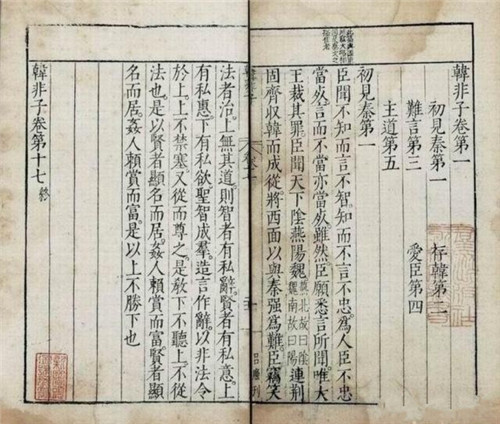 韓非子卷第一
初見秦第一 存韓第二
難言第三 愛臣第四
主道第五
初見秦第一
臣聞不知而言不智知而不言不忠爲人臣不忠
當死言而不當亦當死雖然臣願悉言所聞唯大
王裁其罪臣聞天下陰燕陽魏燕北故曰陰魏南故曰陽連荆
固齊収韓而成從將西面以與秦强爲難臣竊笑
法者治上無其道則智者有私辭賢者有私意上
有私惠下有私欲聖智成羣造言作辭以非法令
於上上不禁塞又從而尊之是敎下不聽上不從
法也是以賢者顯名而居姦人賴賞而富賢者顯
名而居姦人賴賞而富是以上不勝下也
韓非子卷第十七終